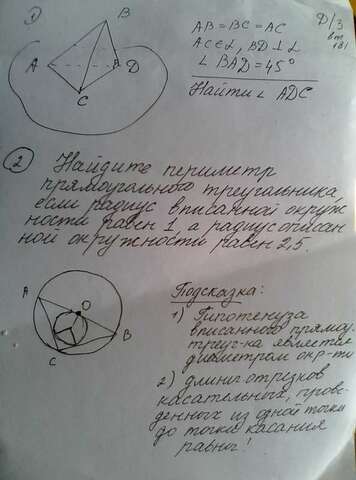 1
B
A
D
C
AB = BC = AC
AC ∈ α, BD ⊥ α
∠ BAD = 45°
Найти ∠ ADC
Д/З
вт
2
Найдите периметр
прямоугольного треугольника,
если радиус вписанной окруж
ности равен 1, а радиус описан
ной окружности равен 2,5.
A
O
B
C
Подсказка:
1) Гипотенуза
вписанного прямоу.
треуг-ка является
диаметром окр-ти
2) длины отрезков
касательных, прове-
денных из одной точки
до точки касания
равны!